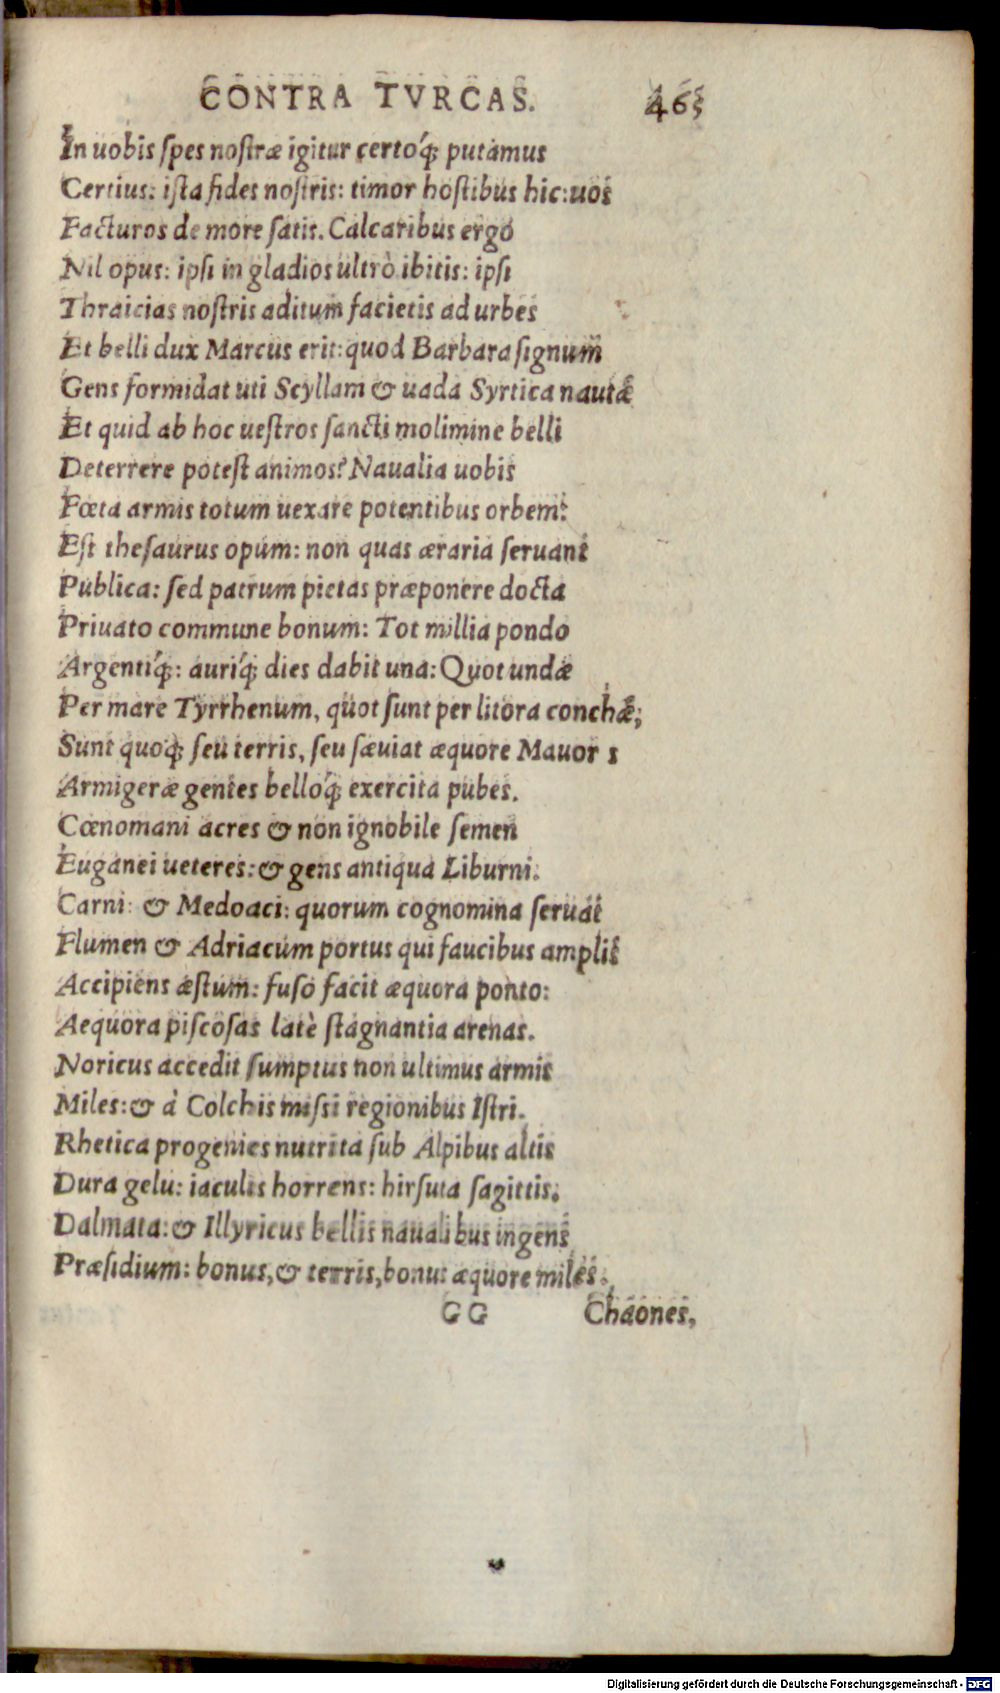 CONTRA TVRCAS. 465
In uobis spes nostræ igitur certoq́; putamus
Certius: ista fides nostris: timor hostibus hic:uos
Facturos de more satis. Calcaribus ergo
Nil opus: ipsi in gladios ultrò ibitis: ipsi
Thraicias nostris aditum facietis ad urbes
Et belli dux Marcus erit: quod Barbara signum
Gens formidat uti Scyllam & uada Syrtica nautæ
Et quid ab hoc uestros sancti molimine belli
Deterrere potest animos? Naualia uobis
Fœta armis totum uexare potentibus orbem:
Est thesaurus opum: non quas æraria seruant
Publica: sed patrum pietas præponere docta
Priuato commune bonum: Tot millia pondo
Argentiq́;: auriq́; dies dabit una: Quot undæ
Per mare Tyrrhenum, quot sunt per litora conchæ;
Sunt quoq; seu terris, seu sæuiat æquore Mauors
Armigeræ gentes belloq́; exercita pubes.
Cœnomani acres & non ignobile semen
Euganei ueteres: & gens antiqua Liburni:
Carni: & Medoaci: quorum cognomina seruāt
Flumen & Adriacum portus qui faucibus amplis
Accipiens æstum: fuso facit æquora ponto:
Aequora piscosas latè stagnantia arenas.
Noricus accedit sumptus non ultimus armis
Miles: & à Colchis missi regionibus Istri.
Rhetica progenies nutrita sub Alpibus altis
Dura gelu: iaculis horrens: hirsuta sagittis.
Dalmata: & Illyricus bellis naualibus ingens
Præsidium: bonus, & terris, bonus æquore miles.
GG Chaones,
Digitalisierung gefördert durch die Deutsche Forschungsgemeinschaft - DFG